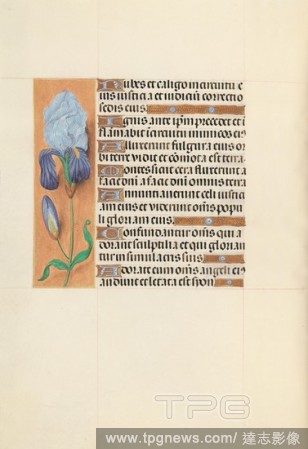 Nubes et caligo in circuitu ei
us iusticia et iudiciu correctio
sedis eius.
Ignis ante ipm precedet et i
flamabit i circuitu inimicos ei
Alluxerunt fulgura eius
orbi terre vidit et comota est terra
Montes sicut cera fluxerunt a
facie dni a facie dni omnis terra
Annunciaverunt celi iustici
am eius et viderunt oms popu
li gloriam eius.
Confundantur oms qui a
dorant sculptilia et qui glorian
tur in simulacris suis
Adorate eum oms angeli ei
audivit et letata est syon
TPG
www.tpgnews.com/ 達志影像